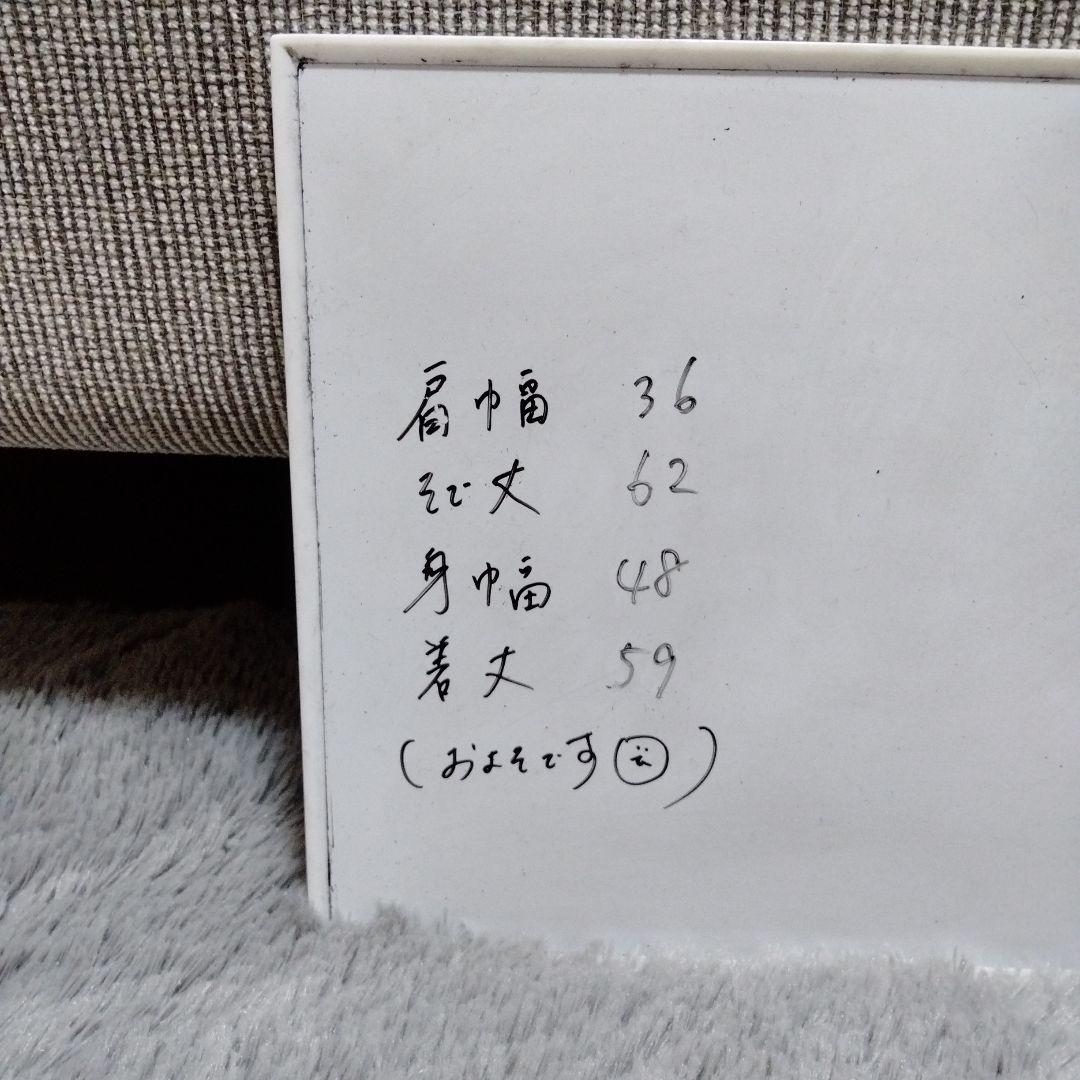 肩幅 36
そで丈 62
身幅 48
着丈 59
(およそです)